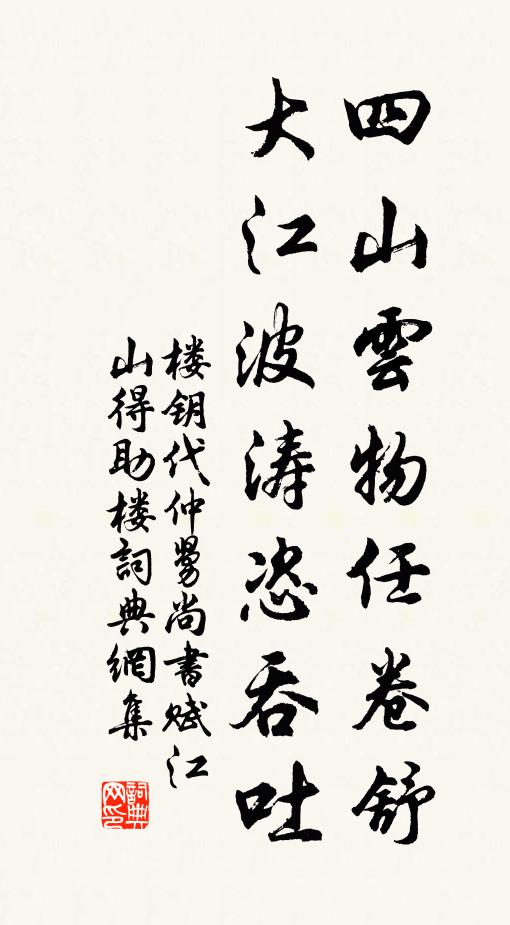 四山雲物任卷舒
大江波涛恣吞吐
楼钥代仲舅尚書赋江
山得助楼詞典網集
詞典
网印